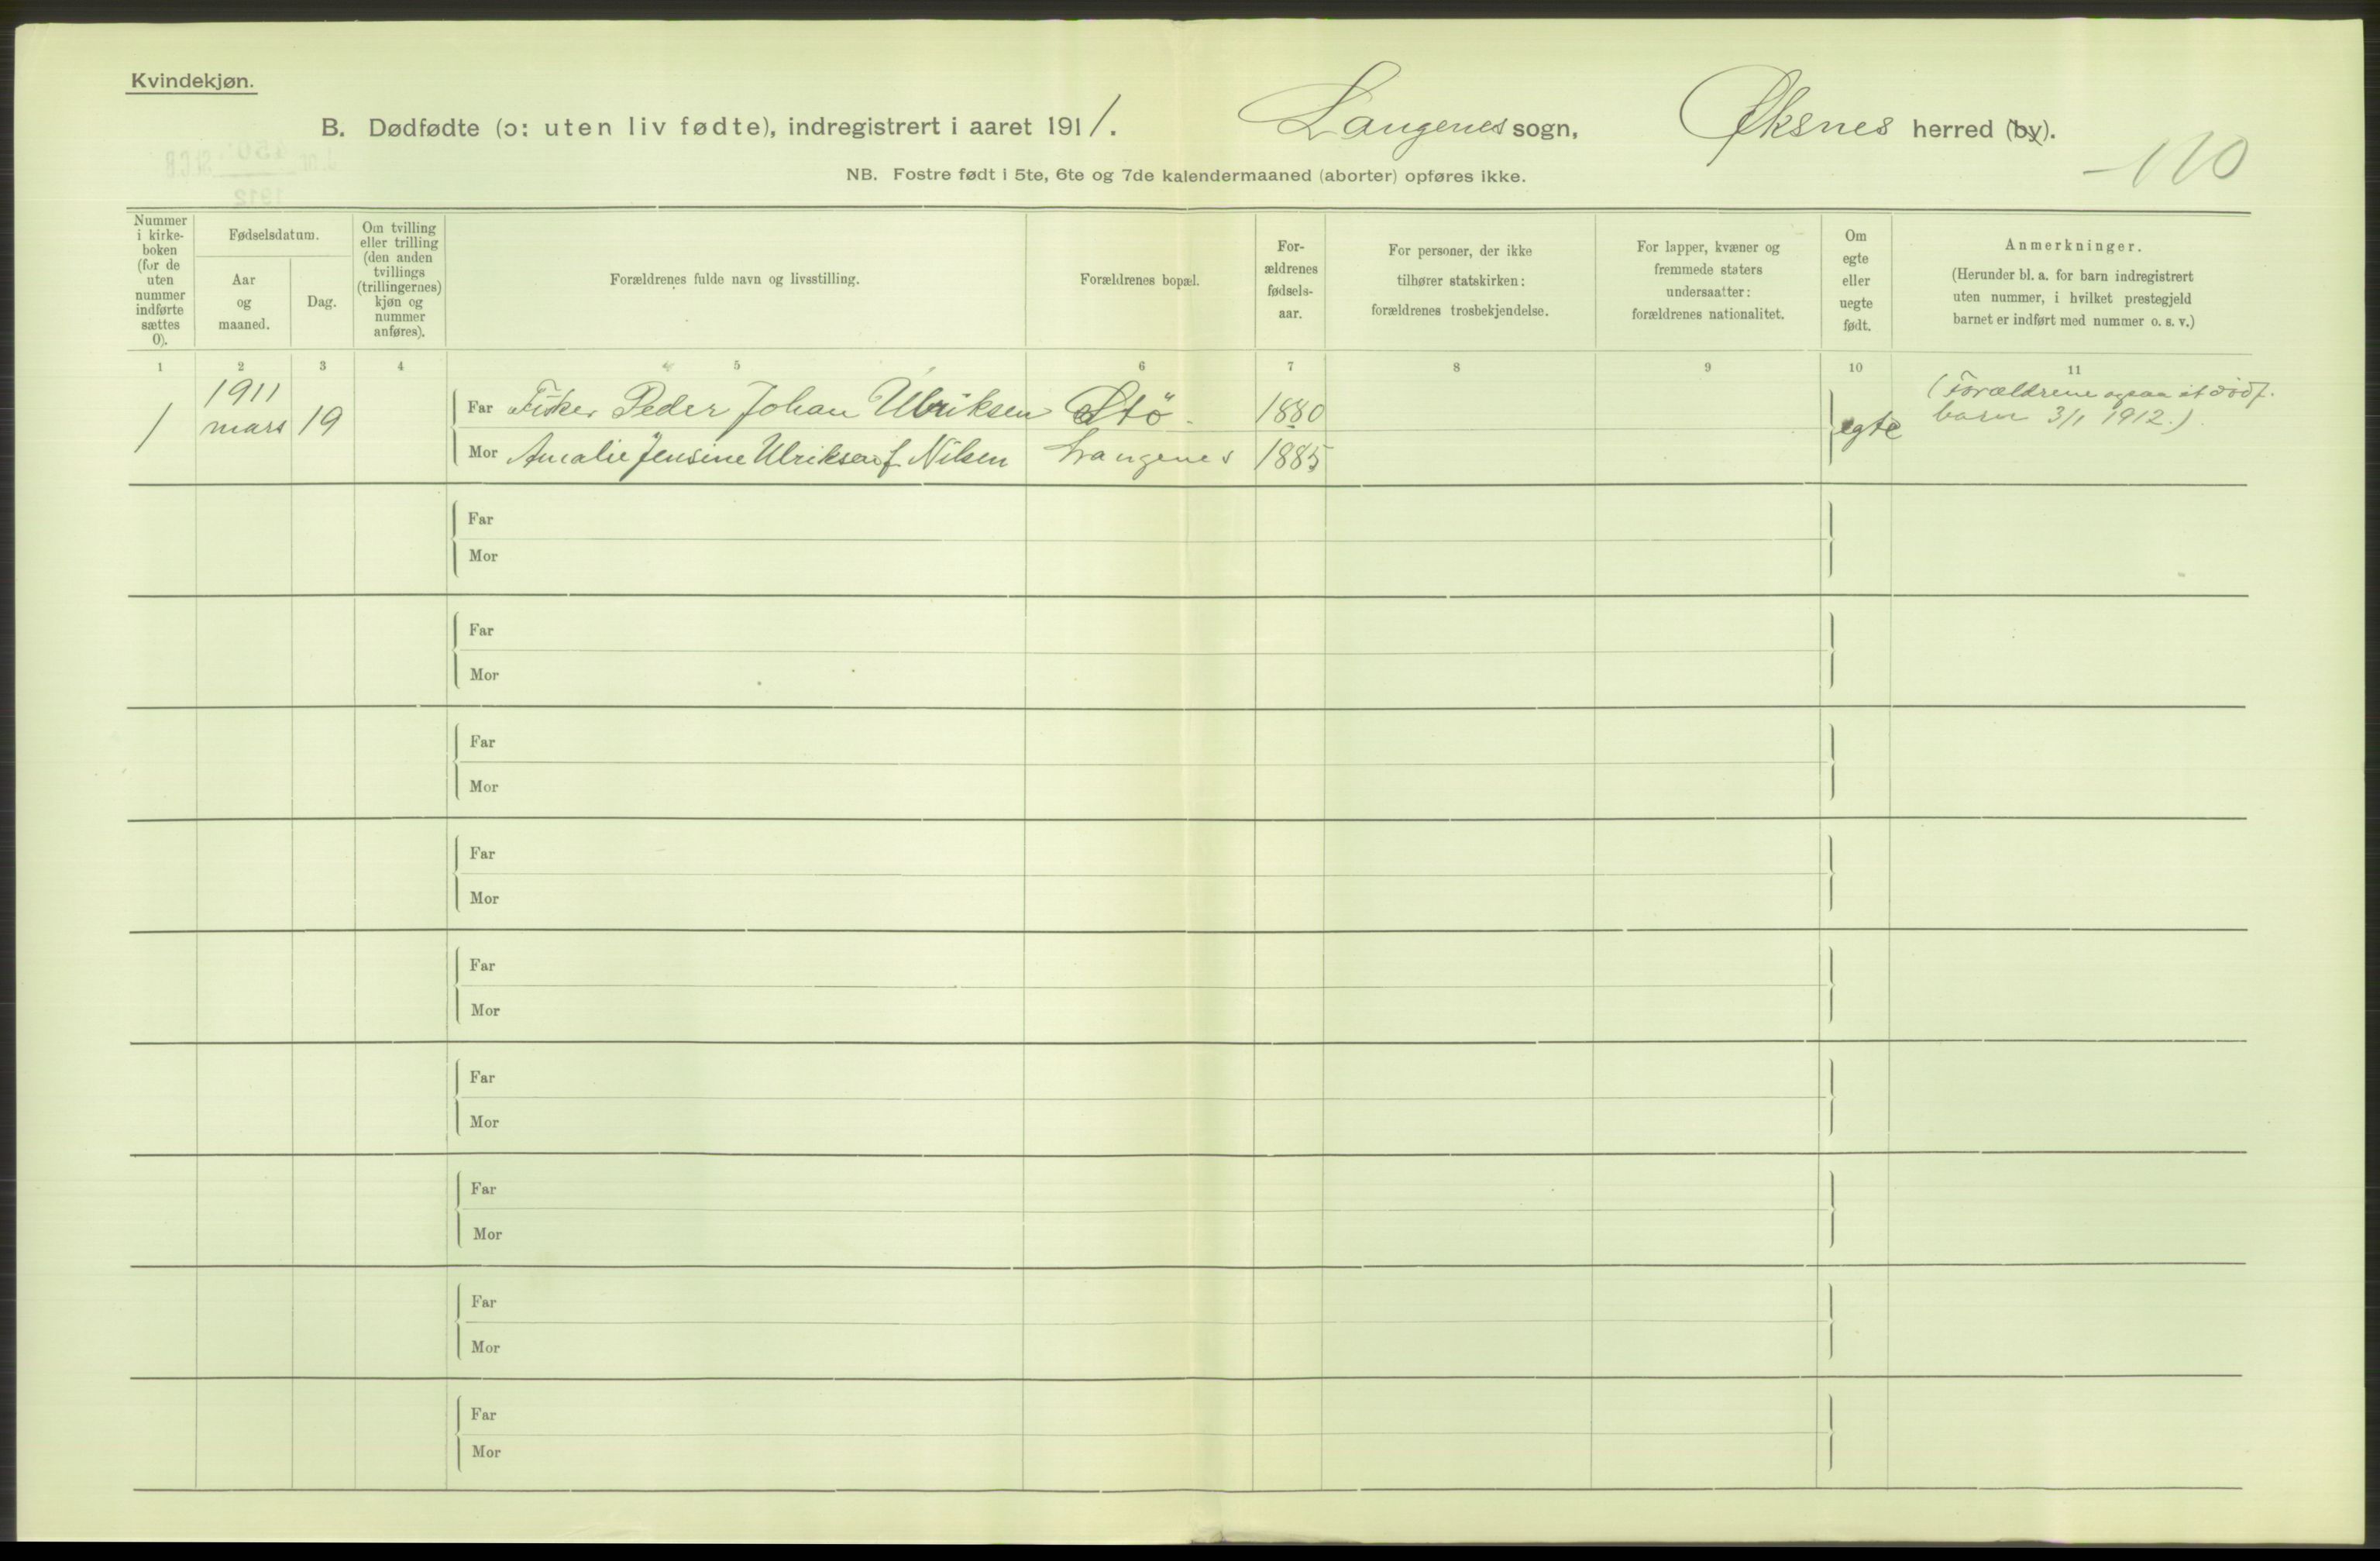 Kvindekjøn.
B. Dødfødte (ɔ: uten liv fødte), indregistrert i aaret 1911. Langenes sogn, Øksnes herred (by).
110
NB. Fostre født i 5te, 6te og 7de kalendermaaned (aborter) opføres ikke.
1912
Nummer i kirke-boken (for de uten nummer indførte sættes 0).
Fødselsdatum.
Aar og maaned.
Dag.
Om tvilling eller trilling (den anden tvillings (trillingernes) kjøn og nummer anføres).
Forældrenes fulde navn og livsstilling.
Forældrenes bopæl.
For-ældrenes fødsels-aar.
For personer, der ikke tilhører statskirken: forældrenes trosbekjendelse.
For lapper, kvæner og fremmede staters undersaatter: forældrenes nationalitet.
Om egte eller uegte født.
Anmerkninger.
(Herunder bl. a. for barn indregistrert uten nummer, i hvilket prestegjeld barnet er indført med nummer o. s. v.)
1 2 3 4 5 6 7 8 9 10 11
1 1911 mars 19
Far Fisker Peder Johan Ulriksen Stö 1880
Mor Amalie Jensine Ulriksen f. Nilsen Langenes 1885
egte
(Forældrene ogsaa et dødf.
barn 3/1 1912.)
Far
Mor
Far
Mor
Far
Mor
Far
Mor
Far
Mor
Far
Mor
Far
Mor
Far
Mor
Far
Mor